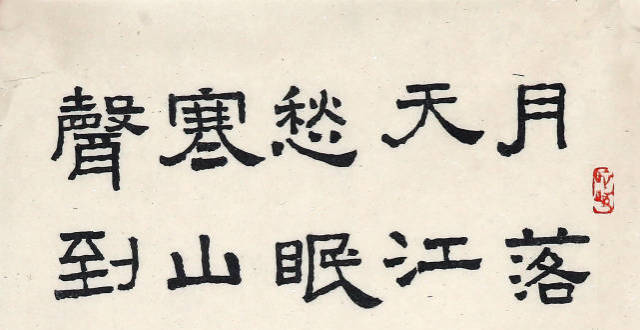 月落
天江
愁眠
寒山
聲到